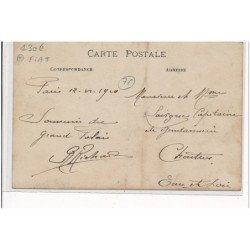 130€
CARTE POSTALE
CORRESPONDANCE
ADRESSE
75
Paris 12-VI-1910
Monsieur et Mme
Capitaine
Souvenir du
de Gendarmerie
Grand Palais
Chartres
Eure et Loir